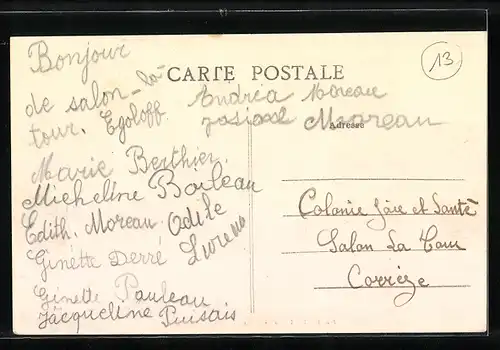 CARTE POSTALE
13
Bonjour
de salon-la-
tour. Egoloff
Andréa Moreau
Moreau
Adresse
Marie Berthier.
Micheline Boileau
Edith. Moreau. Odile
Ginette Derré
Ginette Pauleau
Jacqueline Puisais
Colonie Joie et Santé
Salon La Tour
Corrèze